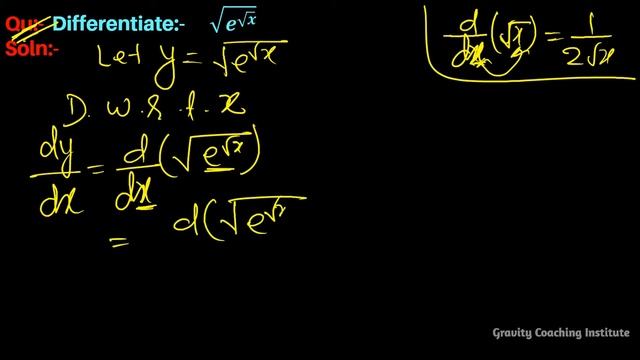 Qu:- Differentiate:- √e^√x
Soln:-
Let y = √e^√x
D. w. r. t. x
dy/dx = d/dx (√e^√x)
= d(√e^√x
d/dx (√x) = 1/2√x
Gravity Coaching Institute